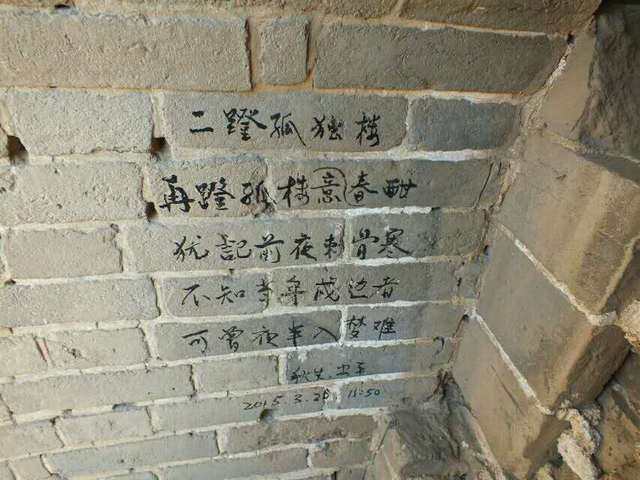 二蹬孤独楼
再蹬孤楼意春酣
犹記前夜刺骨寒
不知当年戍边者
可曾夜半入梦难
2015.3.28 11:50